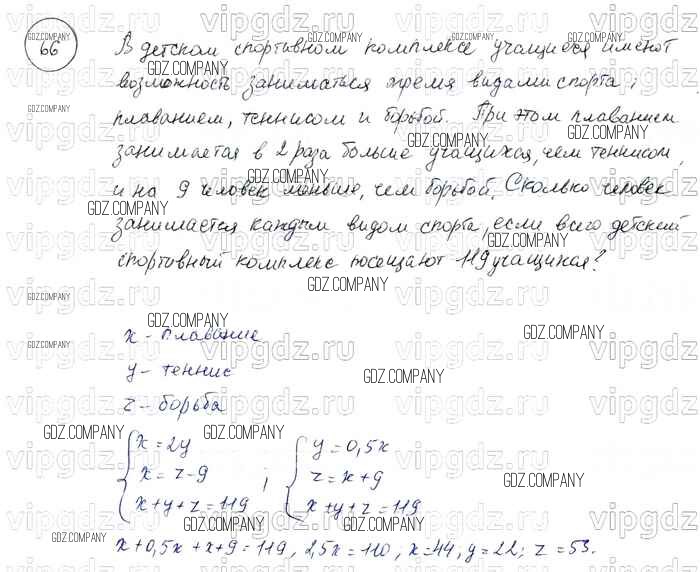 66
В детском спортивном комплексе учащиеся имеют
возможность заниматься тремя видами спорта:
плаванием, теннисом и борьбой. При этом плаванием
занимается в 2 раза больше учащихся, чем теннисом,
и на 9 человек меньше, чем борьбой. Сколько человек
занимается каждым видом спорта, если всего детский
спортивный комплекс посещают 119 учащихся?
x - плавание
y - теннис
z - борьба
x = 2y
x = z - 9
x + y + z = 119
;
y = 0,5x
z = x + 9
x + y + z = 119
x + 0,5x + x + 9 = 119, 2,5x = 110, x = 44, y = 22; z = 53.
GDZ.COMPANY
vipgdz.ru